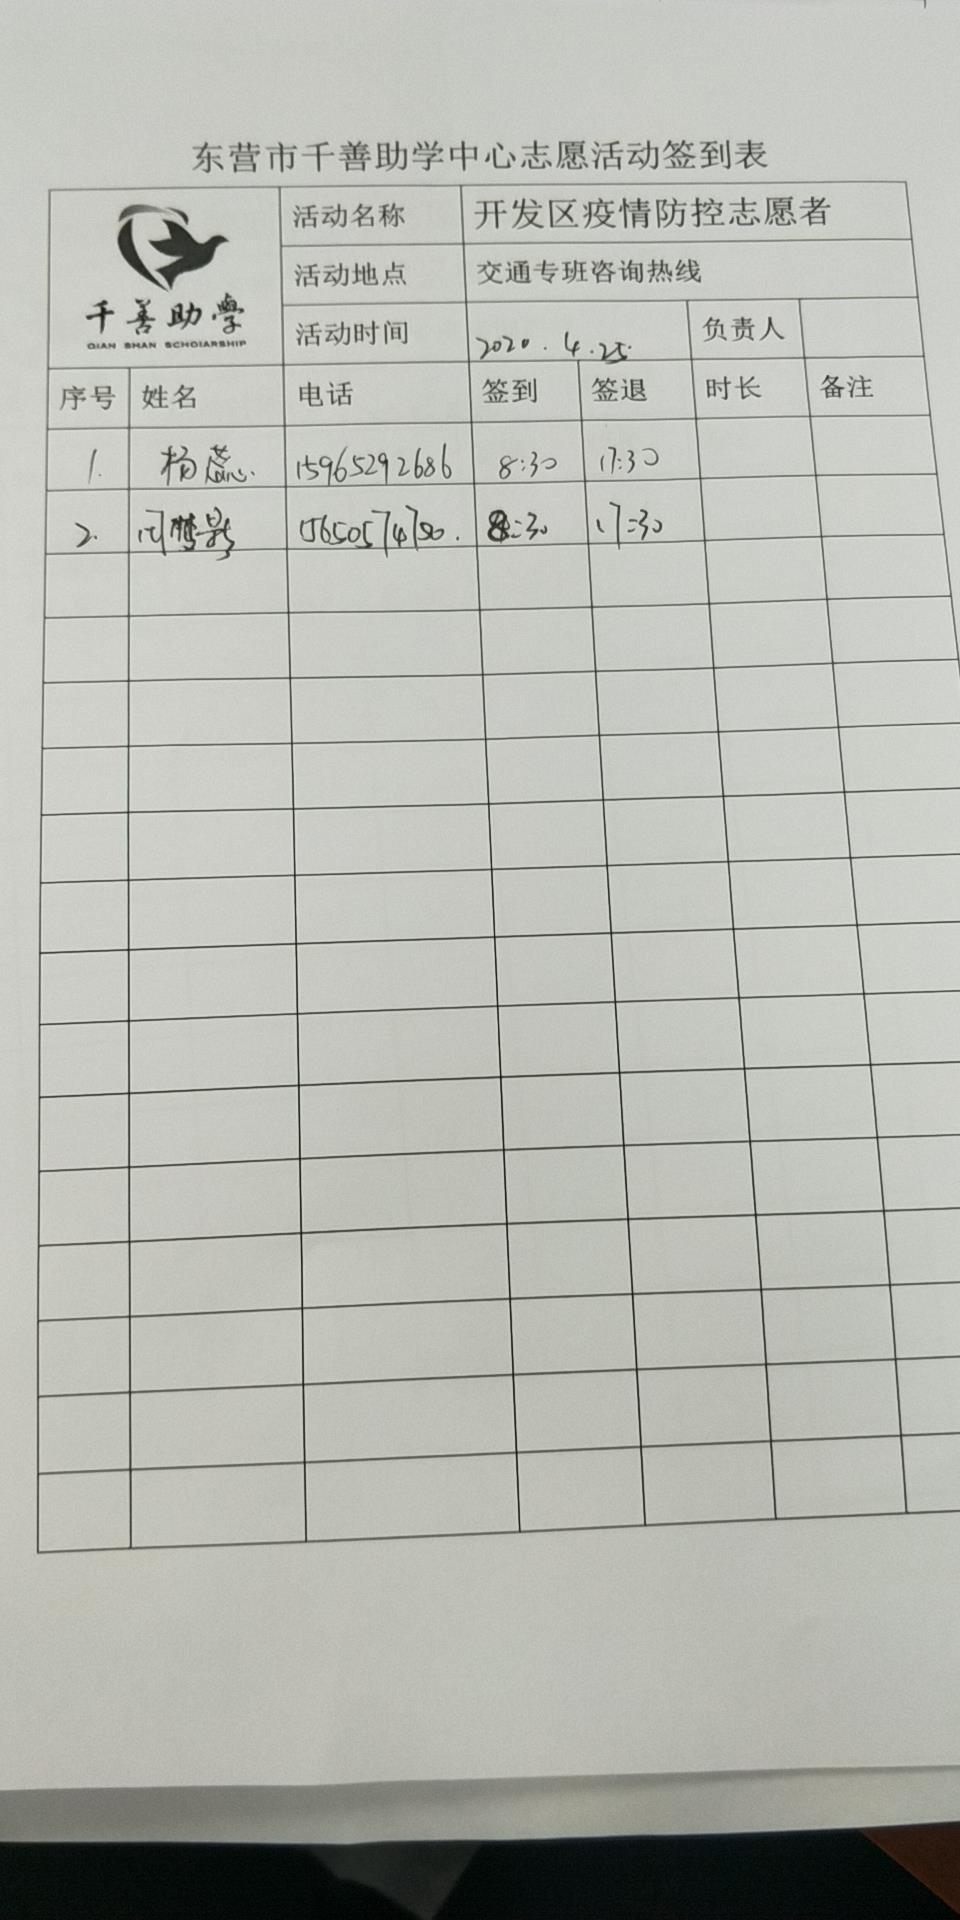 东营市千善助学中心志愿活动签到表
千善助學
QIAN SHAN SCHOLARSHIP
活动名称 开发区疫情防控志愿者
活动地点 交通专班咨询热线
活动时间 2020.4.25. 负责人
序号 姓名 电话 签到 签退 时长 备注
1. 杨蕊 15965292686 8:30 17:30
2. 8:30 17:30